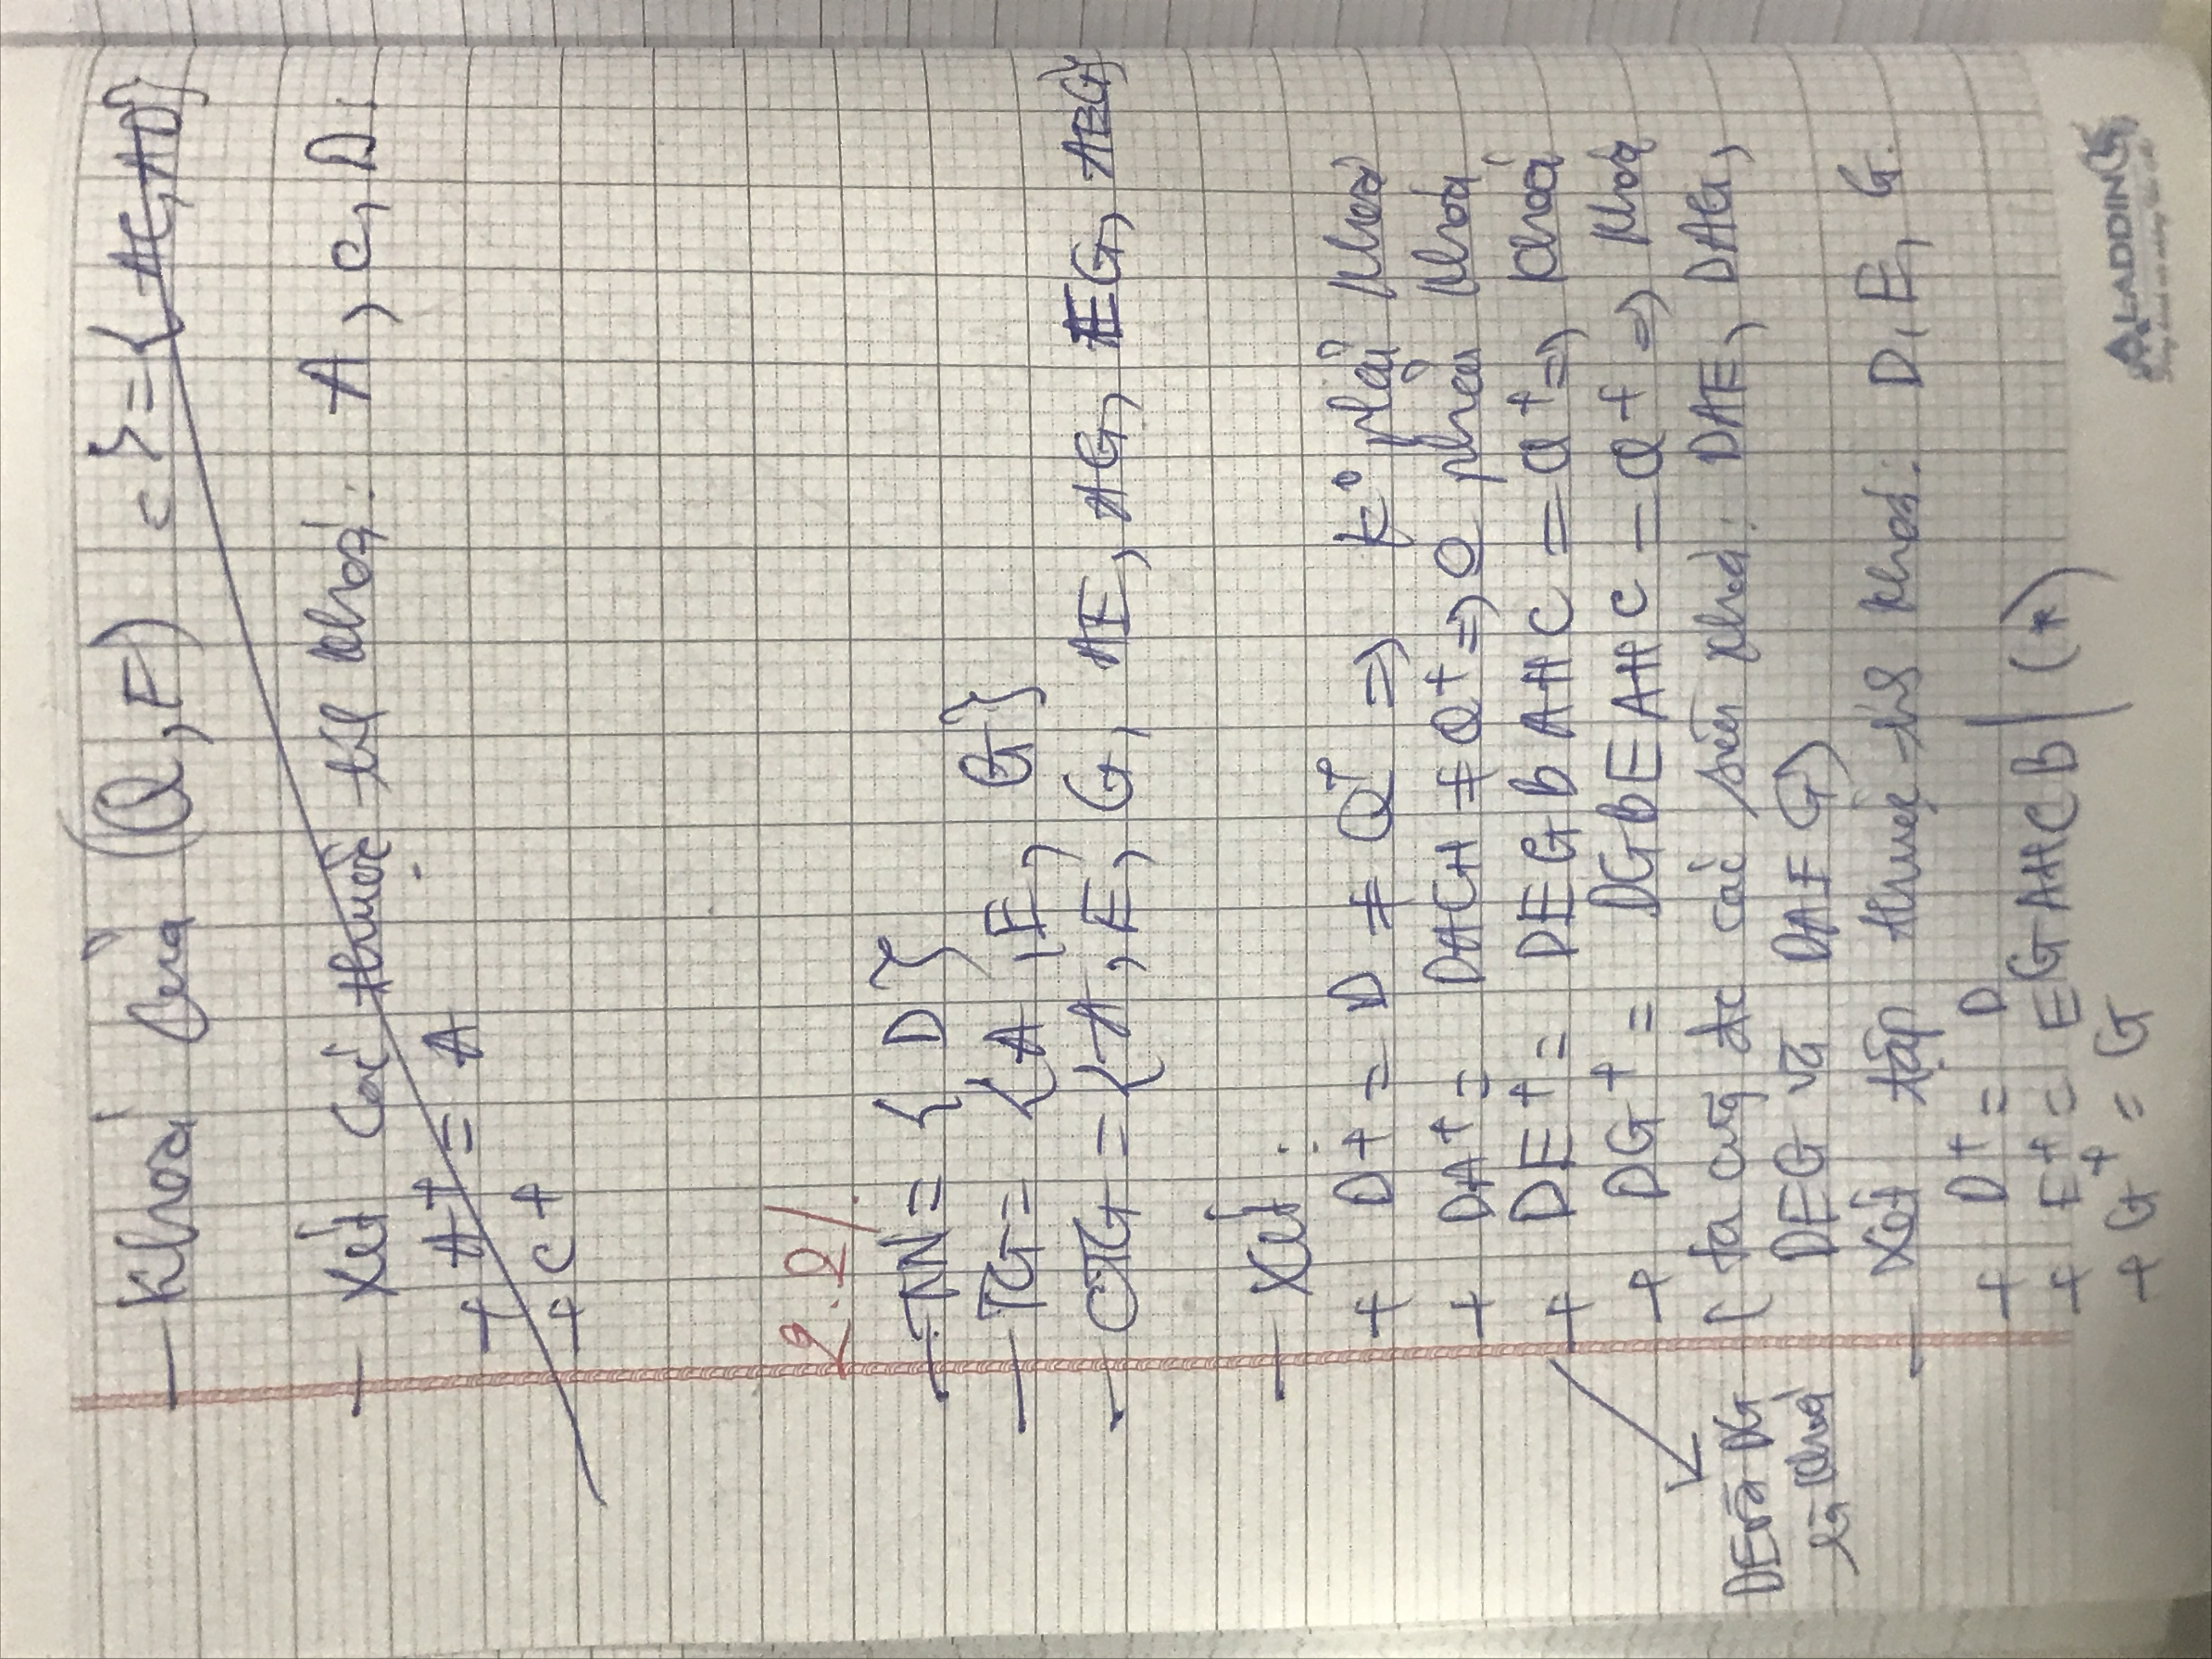 - Khoá của (Q, F) c> = { AC, AD}
- Xét các thuộc tís khoá: A, C, D:
+ A+ = A
+ C+
2.2/.
- TN = { D }
- TG = {A, E, G}
- CTG = {A, E, G, AE, AG, EG, AEG}
- Xét:
+ D+ = D ≠ Q+ => k° phải khoá
+ DA+ = DACH ≠ Q+ => O phải khoá
+ DE+ = DEGBAHC = Q+ => Khoá
+ DG+ = DGBEAHC = Q+ => Khoá
(ta cũg đc các siêu khoá: DAE, DAG,
DEG và DAEG)
DE và DG
là khoá
- Xét tập thuộc tís khoá: D, E, G.
+ D+ = D
+ E+ = EGAHCB | (*)
+ G+ = G
ALADDIN